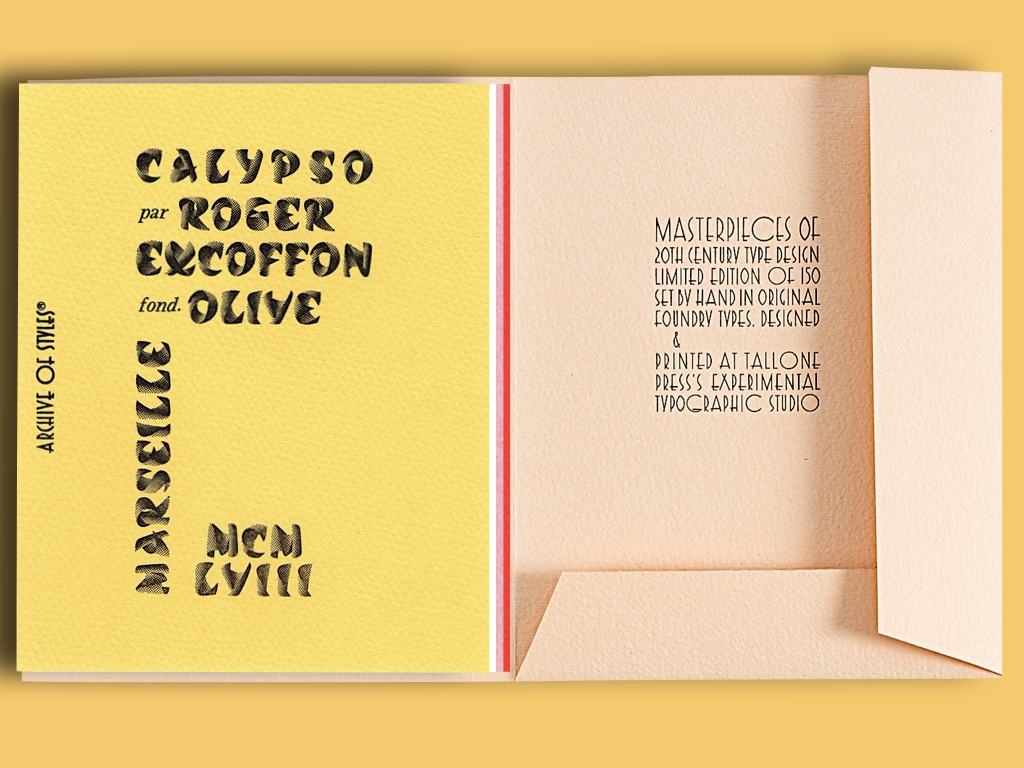 CALYPSO
par ROGER
EXCOFFON
fond. OLIVE
MARSEILLE
MCM
LVIII
ARCHIVE OF STYLES®
MASTERPIECES OF
20TH CENTURY TYPE DESIGN
LIMITED EDITION OF 150
SET BY HAND IN ORIGINAL
FOUNDRY TYPES. DESIGNED
&
PRINTED AT TALLONE
PRESS'S EXPERIMENTAL
TYPOGRAPHIC STUDIO